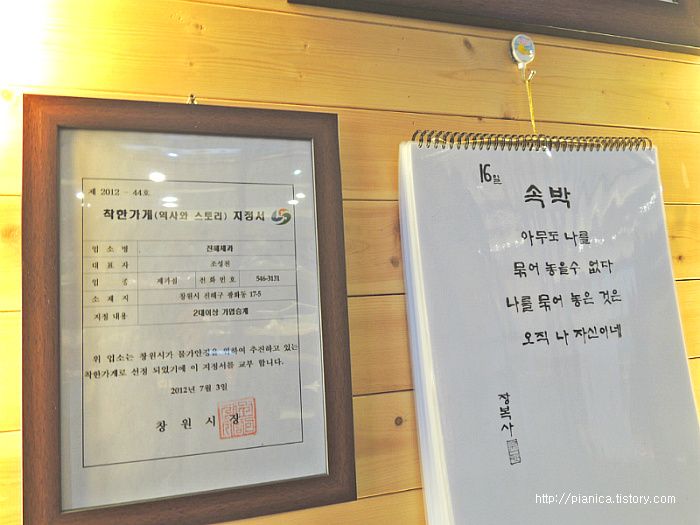 제 2012 - 44호
착한가게(역사와 스토리) 지정서
업 소 명 진해제과
대 표 자 조성천
업 종 제과점 전 화 번 호 546-3131
소 재 지 창원시 진해구 광화동 17-5
지정 내용 2대이상 가업승계
위 업소는 창원시가 물가안정을 위하여 추진하고 있는
착한가게로 선정 되었기에 이 지정서를 교부 합니다.
2012년 7월 3일
창 원 시 장
16일
속박
아무도 나를
묶어 놓을수 없다
나를 묶어 놓은 것은
오직 나 자신이네
장복사
http://pianica.tistory.com